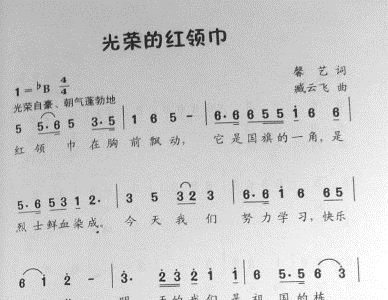 光荣的红领巾
馨艺 词
1=♭B 4/4
臧云飞 曲
光荣自豪、朝气蓬勃地
5 5·6 5 3·5 | 1 6 5 - | 6·6 6 5 5 1 6 6 |
红领巾在胸前飘动， 它是国旗的一角，是
5·6 5 3 1 2· | 3 5 3 2 3 | 6·6 1 6 6 5 |
烈士鲜血染成。 今天我们 努力学习，快乐
6 1 2 - | 3· 2 3 2 1 | 6 5·6 3 5 |
明天的我们是祖国的栋